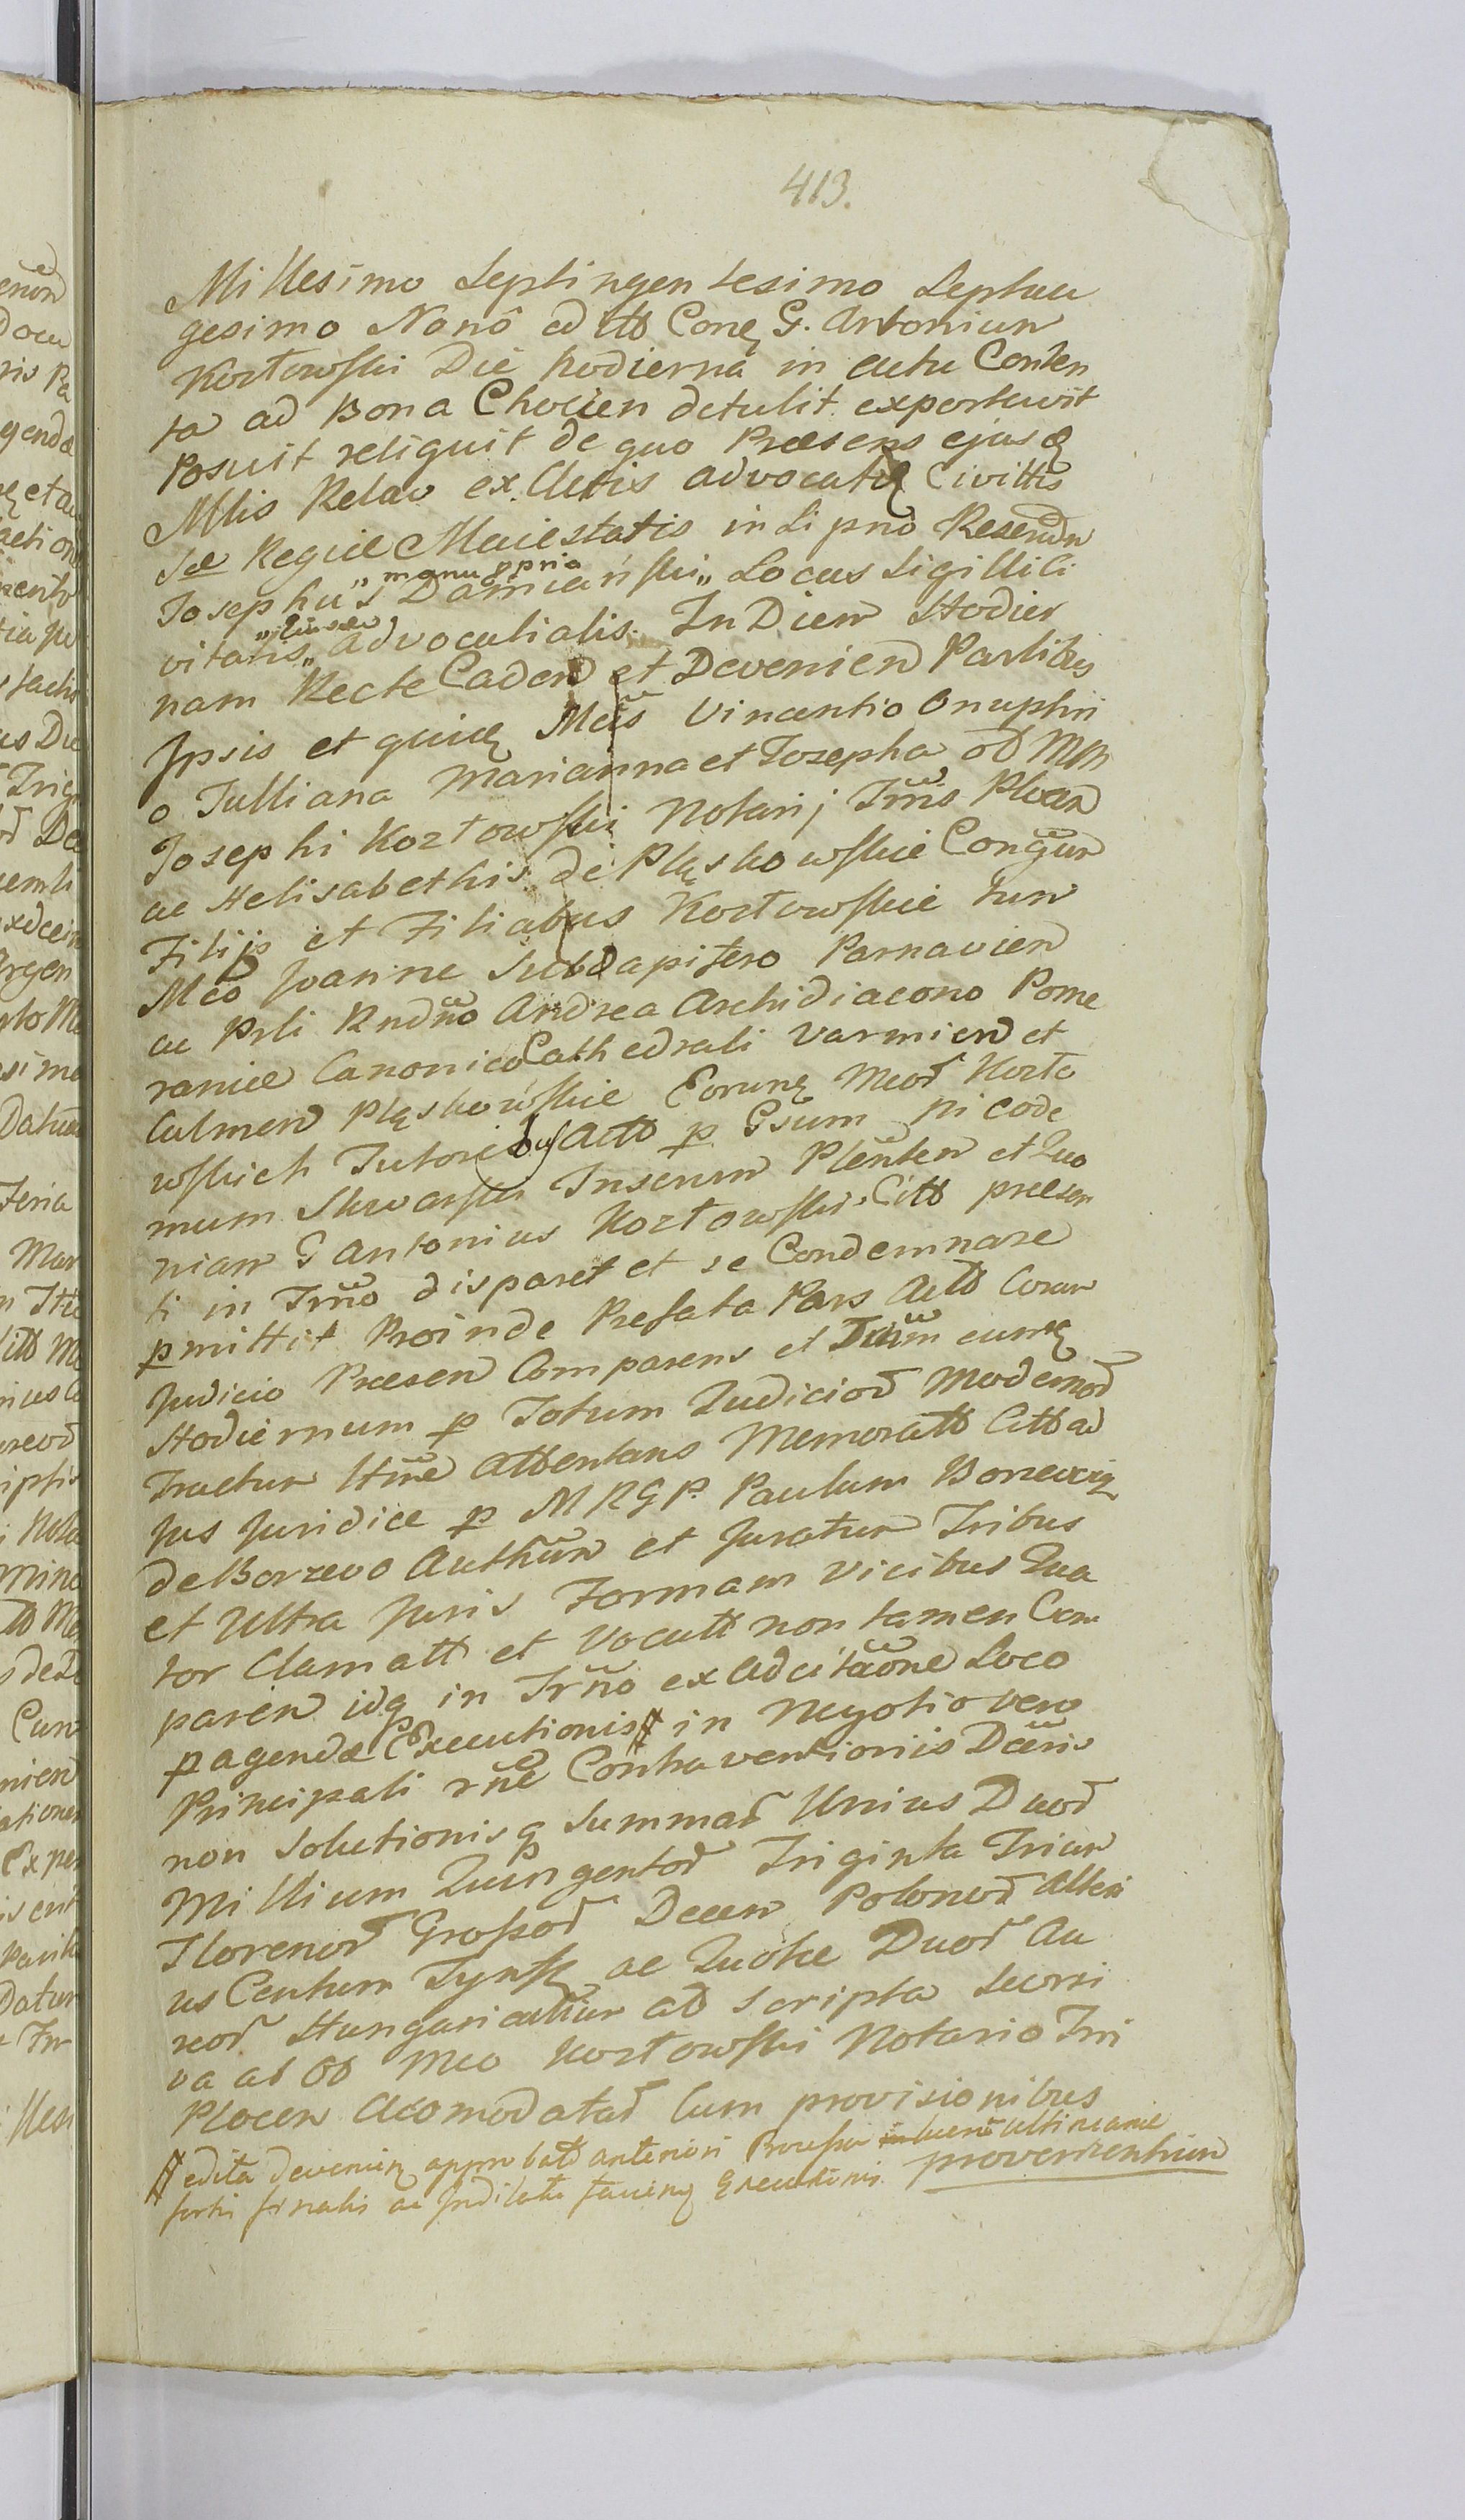 413.
Millesimo Septingentesimo Septua
gesimo Nonô ad Itt Coneq G. Antonium
Kozłowski Die hodierna in eutu Conten
ta ad Bona Chocień detulit exportavit
Posuit reliquit de quo Præsens ejusq
Mltis Relao ex Actis advocatq Civittis
Sæ Regiæ Maiestatis in Lipno Resendn
Josephus „manu ppria Damianski„ Locus Sigilli Ci
vitatis„ „ejusdem advocatialis. In Diem Hodier
nam Recte Caden et Devenien Partibus
Ipsis et quiuq Mcis Vincentio Onuphri
o Julliana Marianna et Josepha oB Mcn
Josephi Kozłowski Notarij Trris Plocen
ac Helisabethis de Pląskowskie Congum
Filijs et Filiabus Kozłowskie tum
Mco Joanne Subdapifero Parnavien
ac Prli Rndno Andrea Archidiacono Pome
raniæ Canonico Cathedrali Varmien et
Culmen Pląskowskie Eorunq Mcor Kozło
wskich Tutoribus Actt p Gsum Nicode
mum Skwarski Inserum Plenten et Quo
niam G Antonius Kozłowski Citt præsen
ti in Trno disparet et se Condemnare
pmittit Proinde Prefata Pars Actt Coram
Judicio Præsen Comparens et Trium eumq
Hodiernum p Totum Judicior Modernor
Tractum Hnre Attentans Memoratt Citt ad
Jus Juridice p M R G P. Paulum Borzewsq
de Borzewo Authum et Juratum Tribus
et Ultra Juris Formam Vicibus Qua
tor Clamatt et Vocatt non tamen Com
paren idq in Trno ex Adcitaone Loco
pagendæ Executionis # in Negotio vero
Principali rne Contraventionis Dcris
non Solutionisq Summar Unius Duor
Millium Quingentor Triginta Trium
Florenor Grossor Decem Polonor Alteri
us Centum Tynff ac Quotæ Duor Au
reor Hungaricalium ad scripta Leorsi
va ab OB Mco Kozłowski Notario Trri
Plocen Acomodatar Cum provisionibus
# edita deveninq approbatt anteriori Processu lucri Ultimarie
fortis finalis ac Judicata facienq Executionis provenientium